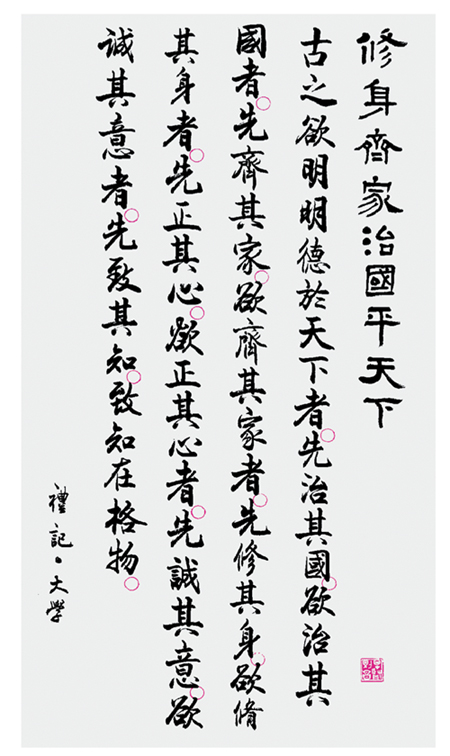 修身齊家治國平天下
古之欲明明德於天下者。先治其國。欲治其
國者。先齊其家。欲齊其家者。先修其身。欲脩
其身者。先正其心。欲正其心者。先誠其意。欲
誠其意者。先致其知。致知在格物。
禮記·大學